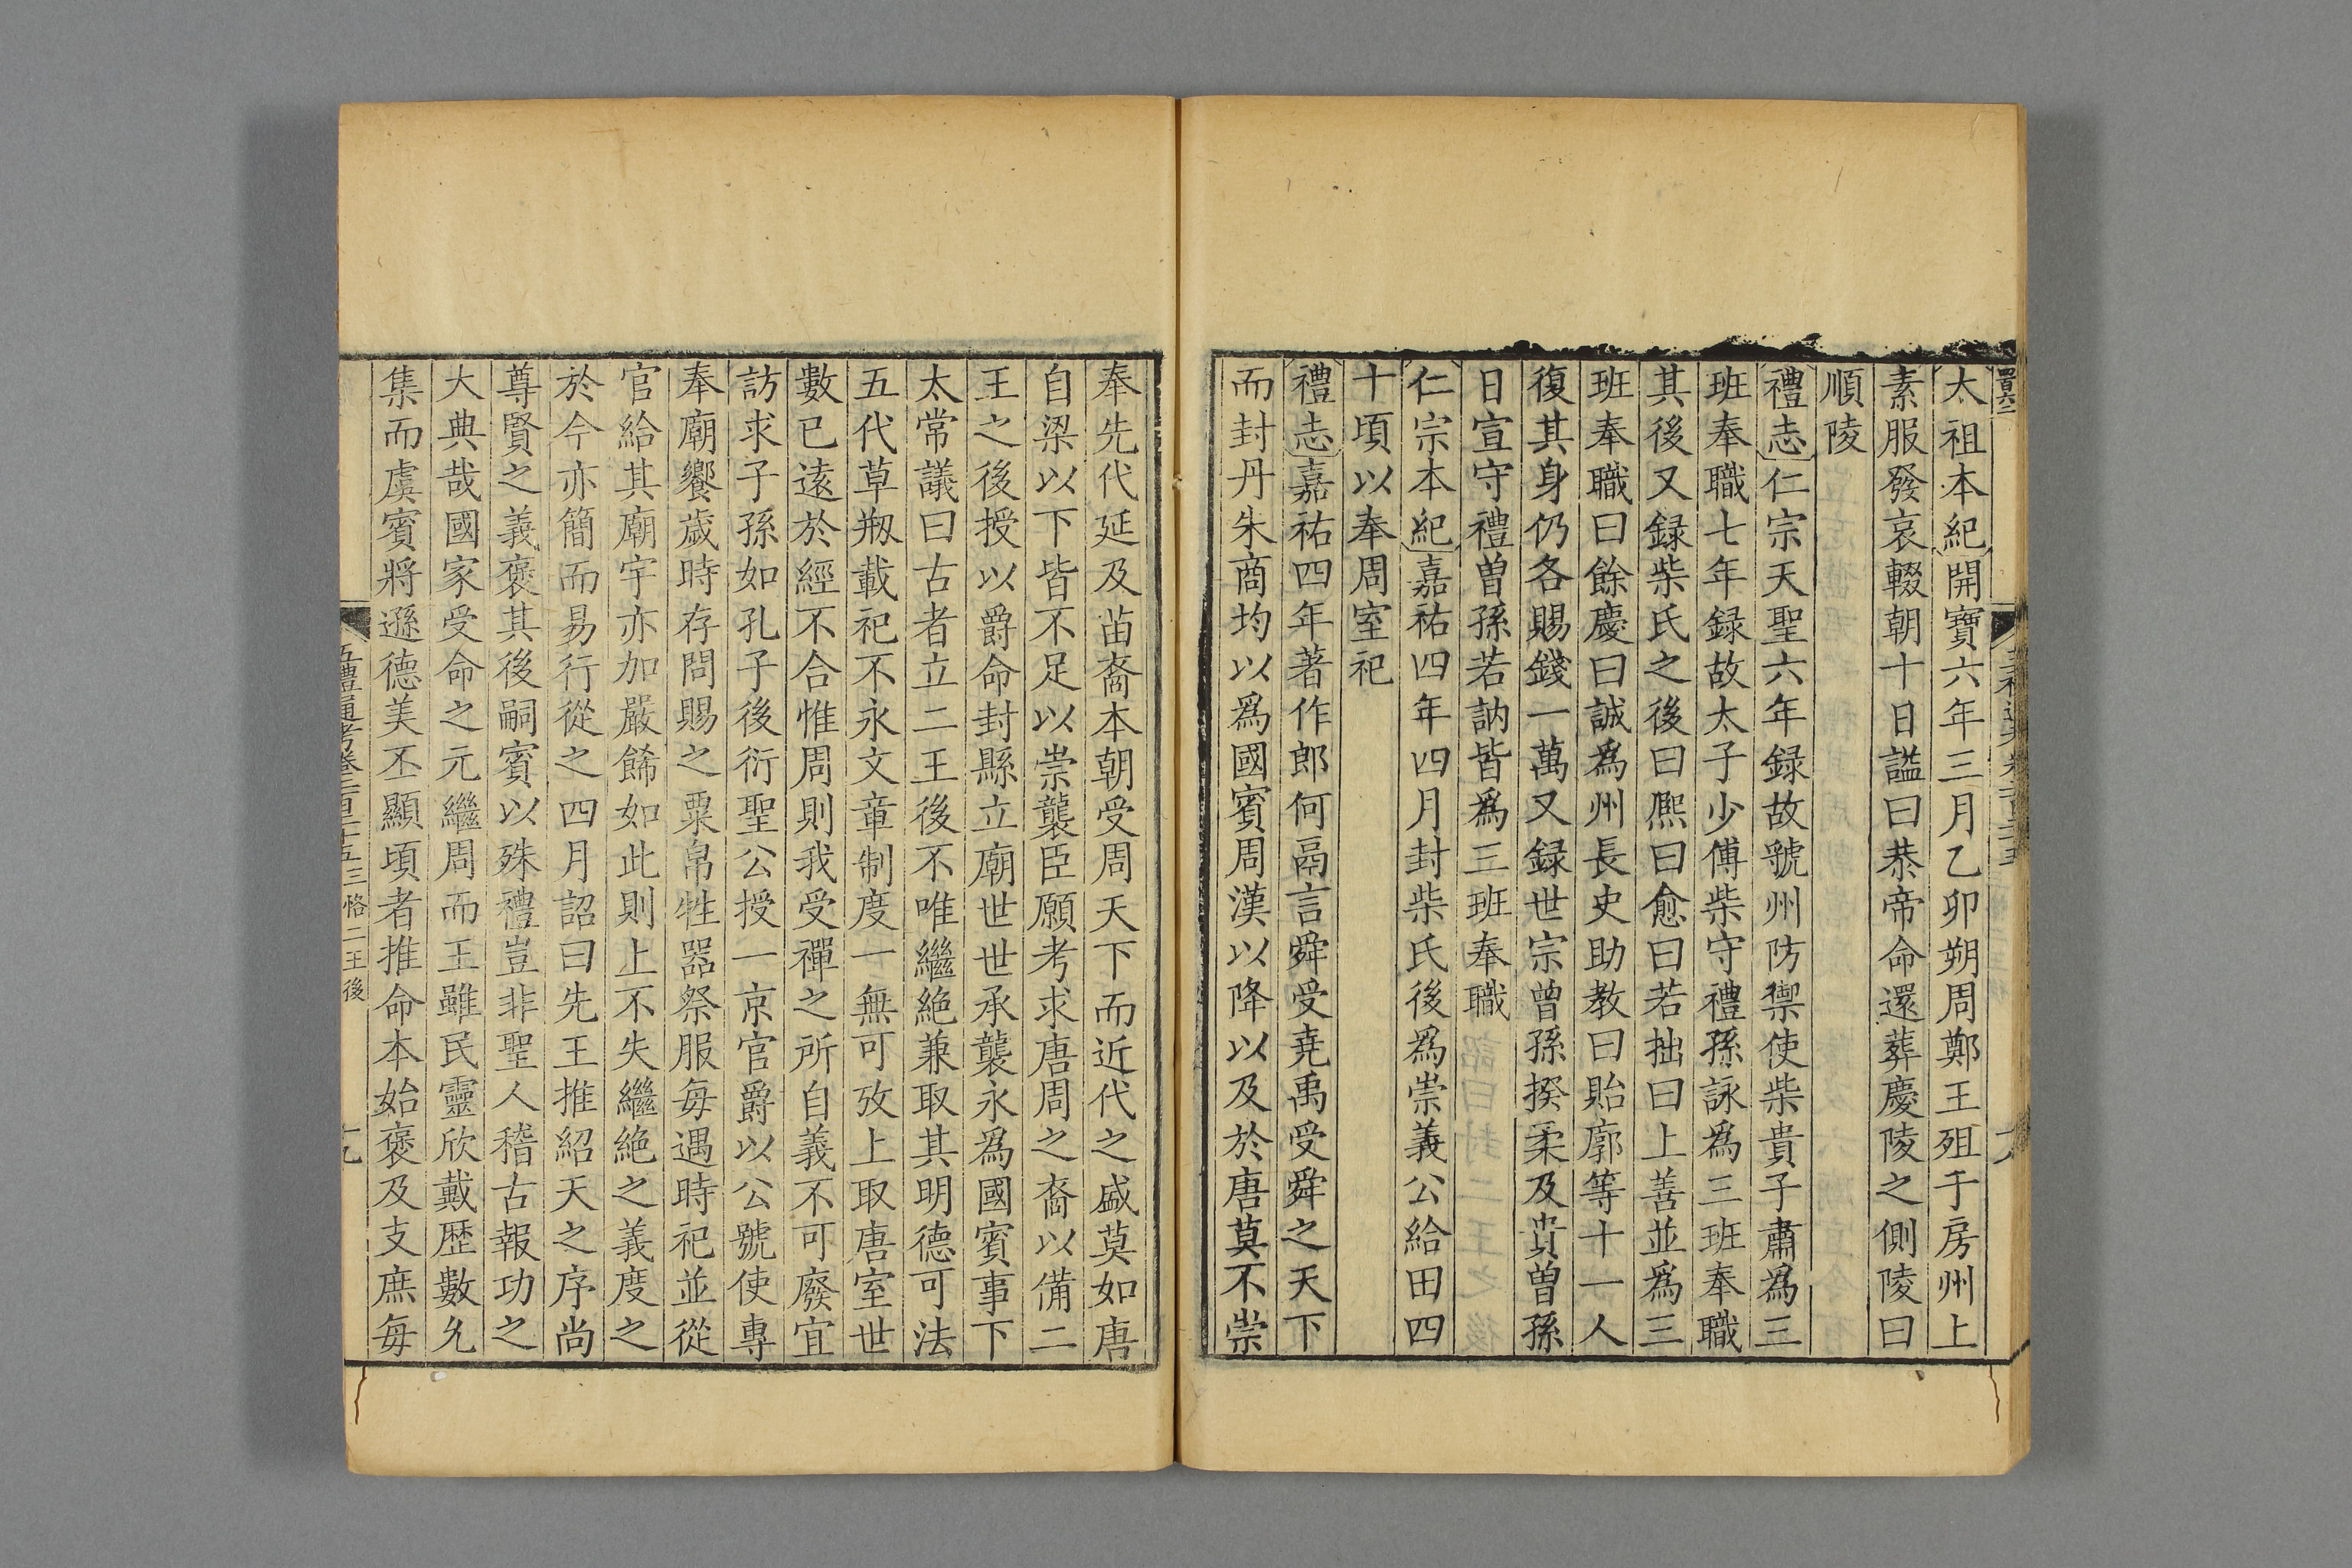 太祖本紀開寶六年三月乙卯朔周鄭王殂于房州上
素服發哀輟朝十日諡曰恭帝命還葬慶陵之側陵曰
順陵
禮志仁宗天聖六年録故虢州防禦使柴貴子肅爲三
班奉職七年録故太子少傅柴守禮孫詠爲三班奉職
其後又録柴氏之後曰熈曰愈曰若拙曰上善並爲三
班奉職曰餘慶曰誠爲州長史助教曰貽廓等十一人
復其身仍各賜錢一萬又録世宗曾孫揆柔及貴曾孫
日宣守禮曾孫若訥皆爲三班奉職
仁宗本紀嘉祐四年四月封柴氏後爲崇義公給田四
十頃以奉周室祀
禮志嘉祐四年著作郎何鬲言舜受堯禹受舜之天下
而封丹朱商均以爲國賓周漢以降以及於唐莫不崇
奉先代延及苗裔本朝受周天下而近代之盛莫如唐
自梁以下皆不足以崇襲臣願考求唐周之裔以備二
王之後授以爵命封縣立廟世世承襲永爲國賓事下
太常議曰古者立二王後不唯繼絶兼取其明德可法
五代草剏載祀不永文章制度一無可攷上取唐室世
數已遠於經不合惟周則我受禪之所自義不可廢宜
訪求子孫如孔子後衍聖公授一京官爵以公號使專
奉廟饗歲時存問賜之粟帛牲器祭服每遇時祀並從
官給其廟宇亦加嚴飾如此則上不失繼絶之義度之
於今亦簡而易行從之四月詔曰先王推紹天之序尚
尊賢之義褒其後嗣賓以殊禮豈非聖人稽古報功之
大典哉國家受命之元繼周而王雖民靈欣戴歷數允
集而虞賓將遜德美丕顯頃者推命本始褒及支庶每
五禮通考卷二百二十五三恪二王後